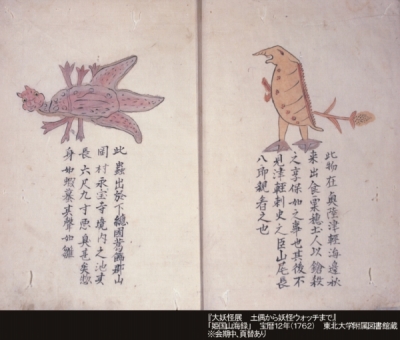 此物在奥陸津軽海邊秋
来出食粟穂土人以鎗殺
之享保如之事也其後不
見津軽刺史之臣山尾長
八郎親者之也
此蟲出於下總國山
岡村永宝寺境内之池其
長六尺九寸悪臭甚矣惣
身如蝦蟇其聲如雛
『大妖怪展　土偶から妖怪ウォッチまで』
「姫国山海録」　宝暦12年（1762）　東北大学附属図書館蔵
※会期中、頁替あり